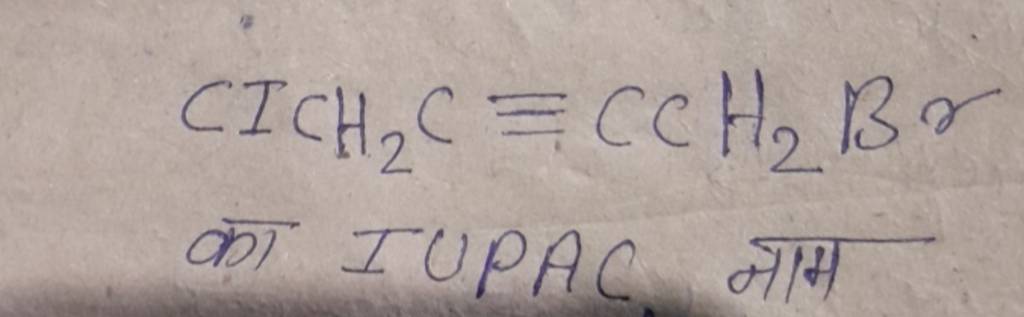 CICH₂C≡CCH₂Br
का IUPAC नाम